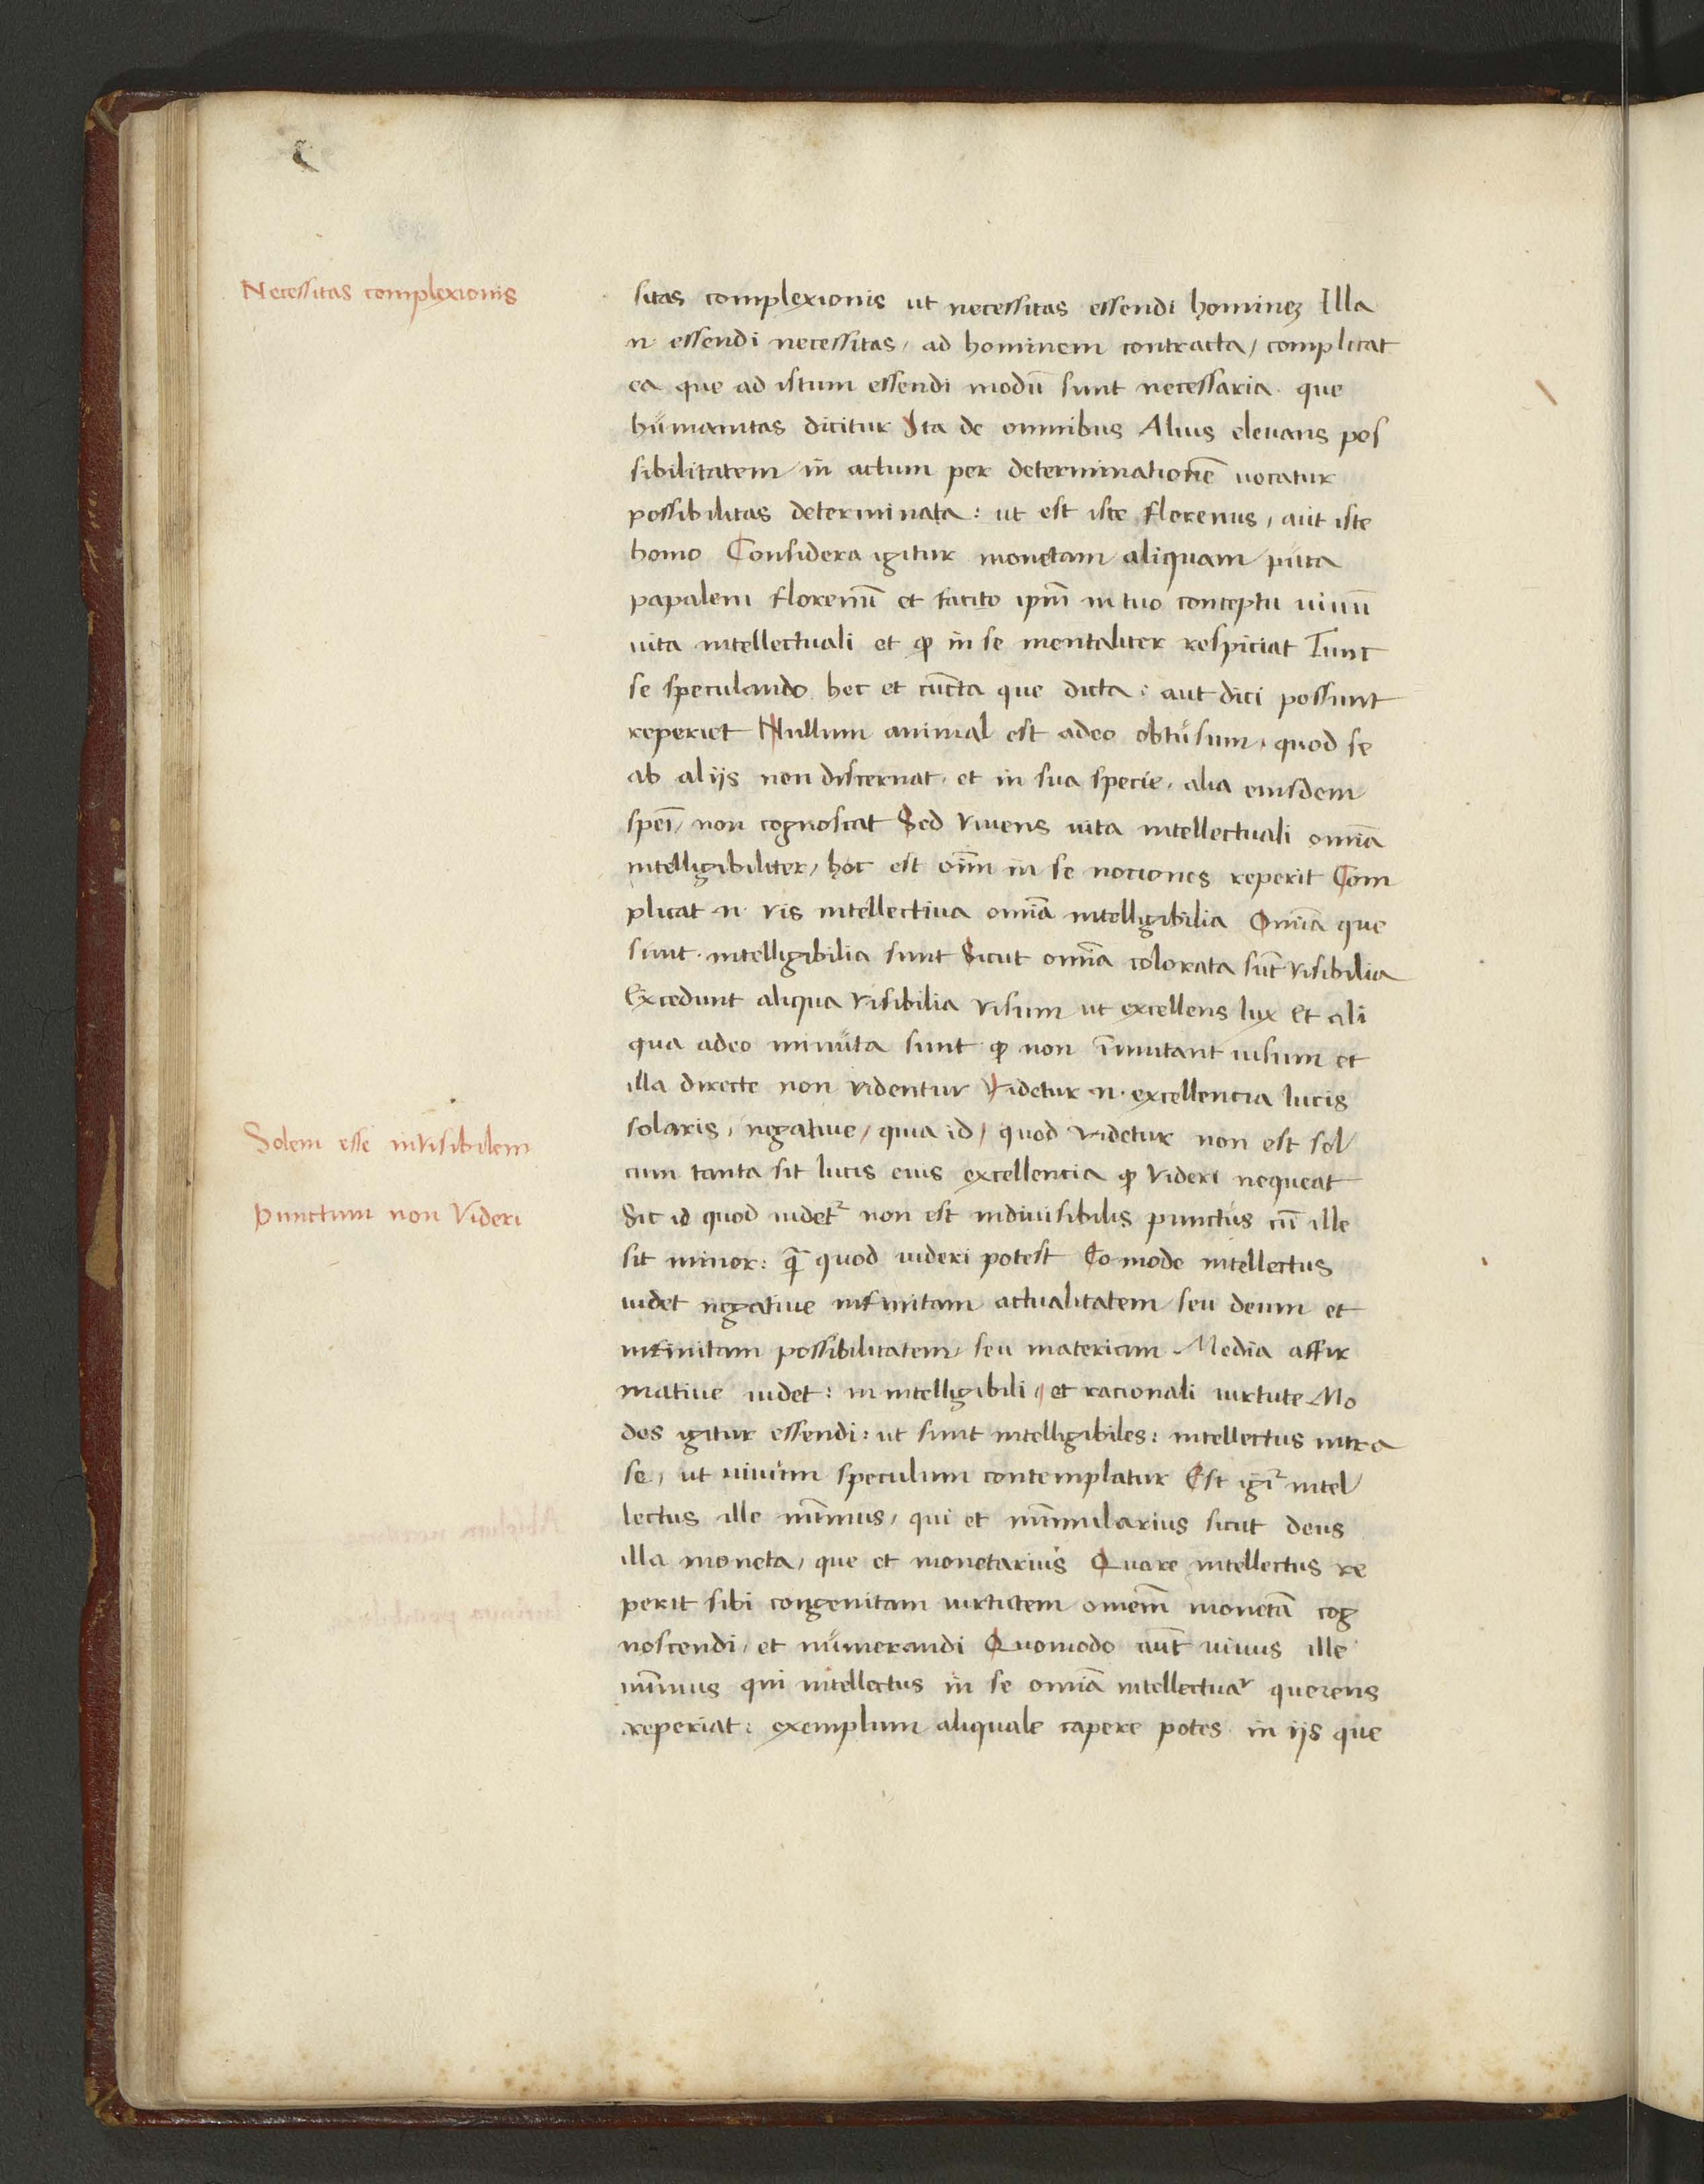 Necessitas complexionis
sitas complexionis ut necessitas essendi homineʒ Illa
n· essendi necessitas, ad hominem contracta, complicat
ea que ad istum essendi modū sunt necessaria· que
humanitas dicitur Ita de omnibus Alius eleuans pos
sibilitatem in actum per determinationē uocatur
possibilitas determinata: ut est iste florenus, aut iste
homo Considera igitur monetam aliquam puta
papalem florenū et facito ip̄m in tuo conceptu uiuū
uita intellectuali et ꝙ in se mentaliter respiciat Tunc
se speculando hec et cūcta que dicta: aut dici possunt
reperiet Nullum animal est adeo obtusum, quod se
ab alijs non discernat, et in sua specie, alia eiusdem
spēi, non cognoscat Sed viuens uita intellectuali omīa
intelligibiliter, hoc est oīm in se nociones reperit Com
plicat n· vis intellectiua omīa intelligibilia Omīa que
sunt· intelligibilia sunt Sicut omīa colorata sūt visibilia
Excedunt aliqua visibilia visum ut excellens lux Et ali
qua adeo minuta sunt ꝙ non īmutant uisum et
illa directe non videntur Videtur n· excellencia lucis
solaris, negatiue, quia id, quod videtur non est sol
Solem esse invisibilem
cum tanta sit lucis eius excellencia ꝙ videri nequeat
Punctum non Videri
Sic id quod uidet᷑ non est indiuisibilis punctus cū ille
sit minor: q̄ quod uideri potest Eo modo intellectus
uidet negatiue infinitam actualitatem seu deum et
infinitam possibilitatem seu materiam. Media affir
matiue uidet: in intelligibili, et racionali uirtute Mo
dos igitur essendi: ut sunt intelligibiles: intellectus intra
se, ut uiuum speculum contemplatur Est igi᷑ intel
lectus ille nūmus, qui et nūmularius sicut deus
illa moneta, que et monetarius Quare intellectus re
perit sibi congenitam uirtutem omnem̄ monetā cog
noscendi, et numerandi Quomodo aūt uiuus ille
nūmus qui intellectus in se omīa intellectua᷑ querens
reperiat: exemplum aliquale capere potes· in ijs que